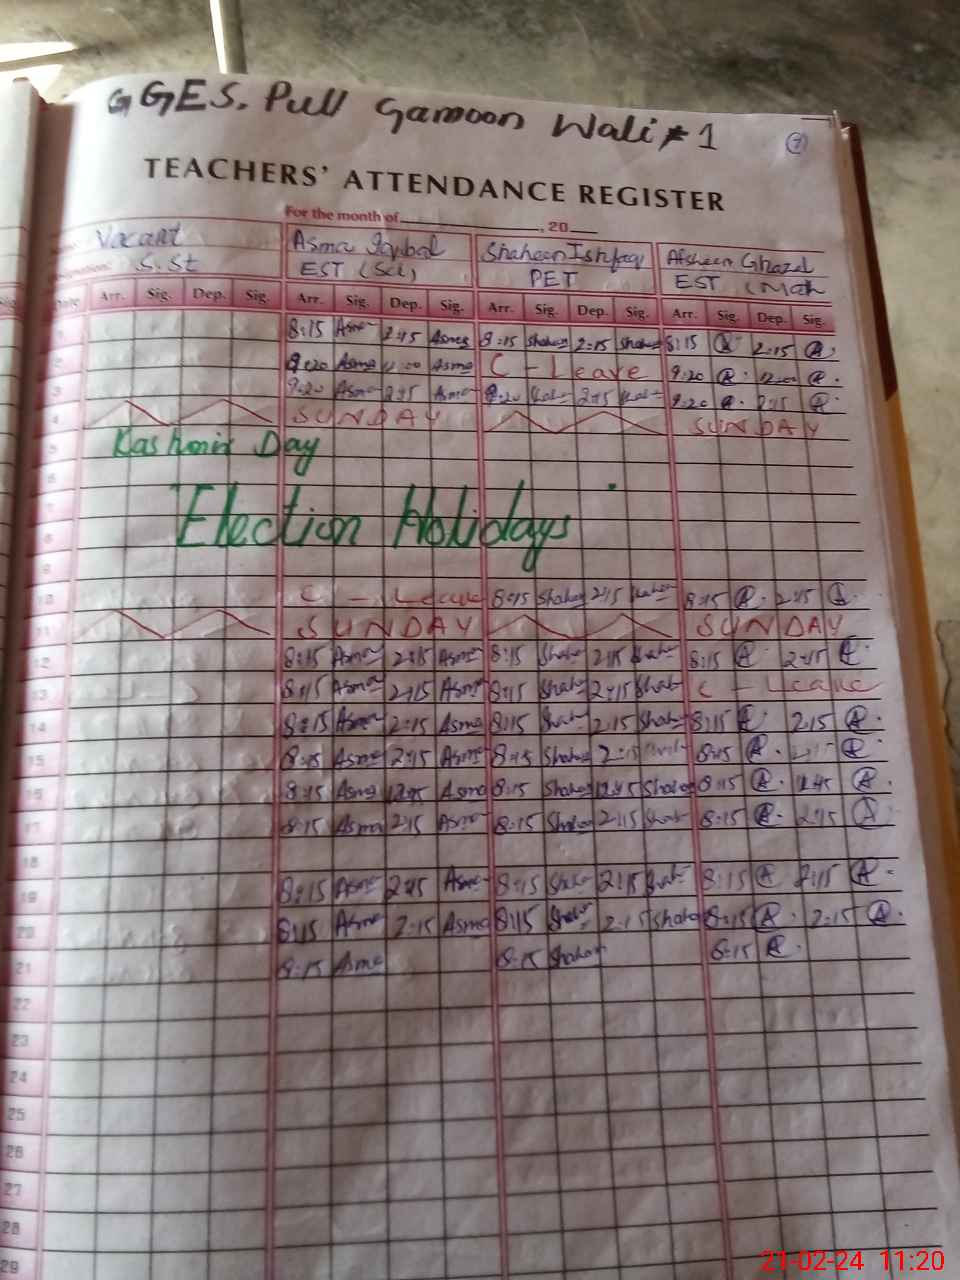 GGES. Pull Gamoon Wali # 1
7
TEACHERS' ATTENDANCE REGISTER
For the month of , 20
Vacant Asma Iqbal Shaheen Ishfaq Afsheen Ghazal
S.St EST (Sci) PET EST (Math
Arr. Sig. Dep. Sig. Arr. Sig. Dep. Sig. Arr. Sig. Dep. Sig. Arr. Sig. Dep. Sig.
8:15 Asma 2:15 Asma 8:15 Shaheen 2:15 Shaheen 8:15 A 2:15 A
2 9:20 Asma 12:00 Asma C - Leave 9:20 A 12:00 A
3 9:20 Asma 2:15 Asma 9:20 2:15 9:20 A 2:15 A
4 SUNDAY SUNDAY
5 Kashmir Day
6
7 Election Holidays
8
9
10 C - Leave 8:15 Shaheen 2:15 8:15 A 2:15 A
11 SUNDAY SUNDAY
12 8:15 Asma 2:15 Asma 8:15 Shah 2:15 Shah 8:15 A 2:15 A
13 8:15 Asma 2:15 Asma 8:15 Shah 2:15 Shah C - Leave
14 8:15 Asma 2:15 Asma 8:15 Shah 2:15 Shah 8:15 A 2:15 A
15 8:15 Asma 2:15 Asma 8:15 Shaheen 2:15 8:15 A A
16 8:15 Asma Asma 8:15 Shaheen 12:15 Shaheen 8:15 A 12:15 A
17 8:15 Asma 2:15 Asma 8:15 Shaheen 2:15 Shah 8:15 A 2:15 A
18
19 8:15 Asma 2:15 Asma 8:15 Shah 2:15 Shah 8:15 A 2:15 A
20 8:15 Asma 2:15 Asma 8:15 Shah 2:15 Shaheen 8:15 A 2:15 A
21 8:15 Asma 8:15 Shaheen 8:15 A
22
23
24
25
26
27
28
29
21-02-24 11:20